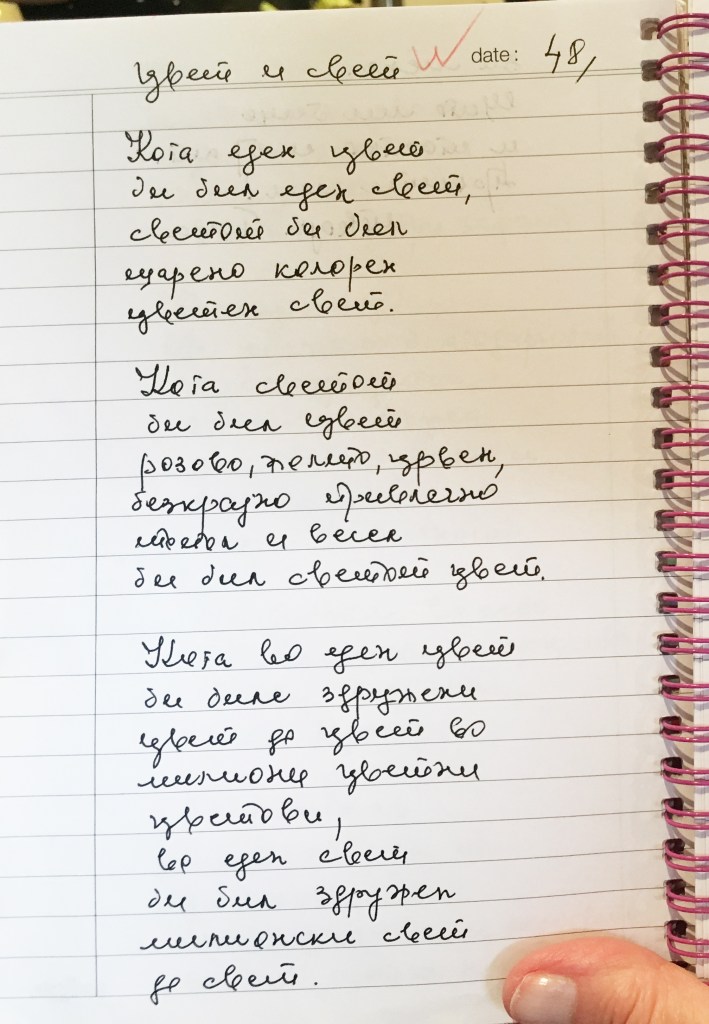 Цвет и свет
date: 48,
Кога еден цвет
би бил еден свет,
светот би бил
шарено колорен
цветен свет.
Кога светот
би бил цвет
розово, желто, црвен,
безкрајно привлечно
топол и весел
би бил светот цвет.
Кога во еден цвет
би биле здружени
цвет до цвет во
милиони цветни
цветови,
во еден свет
би бил здружен
милионски свет
до свет.